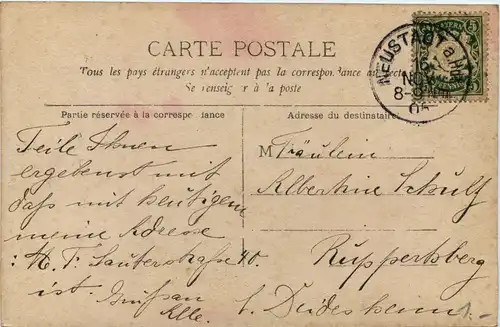 CARTE POSTALE
Tous les pays étrangers n'acceptent pas la correspondance au recto
Se renseigner à la poste
Partie réservée à la correspondance
Adresse du destinataire
BAYERN
5
NEUSTADT a/Hdt
6
NOV
8-9
05
Teile Ihnen
ergebenst mit
daß mit heutigem
meine Adresse
: H. T. Sauterstraße 40.
ist. Gruß an
Alle.
M Fräulein
Albertine Schulz
Ruppertsberg
b. Deidesheim